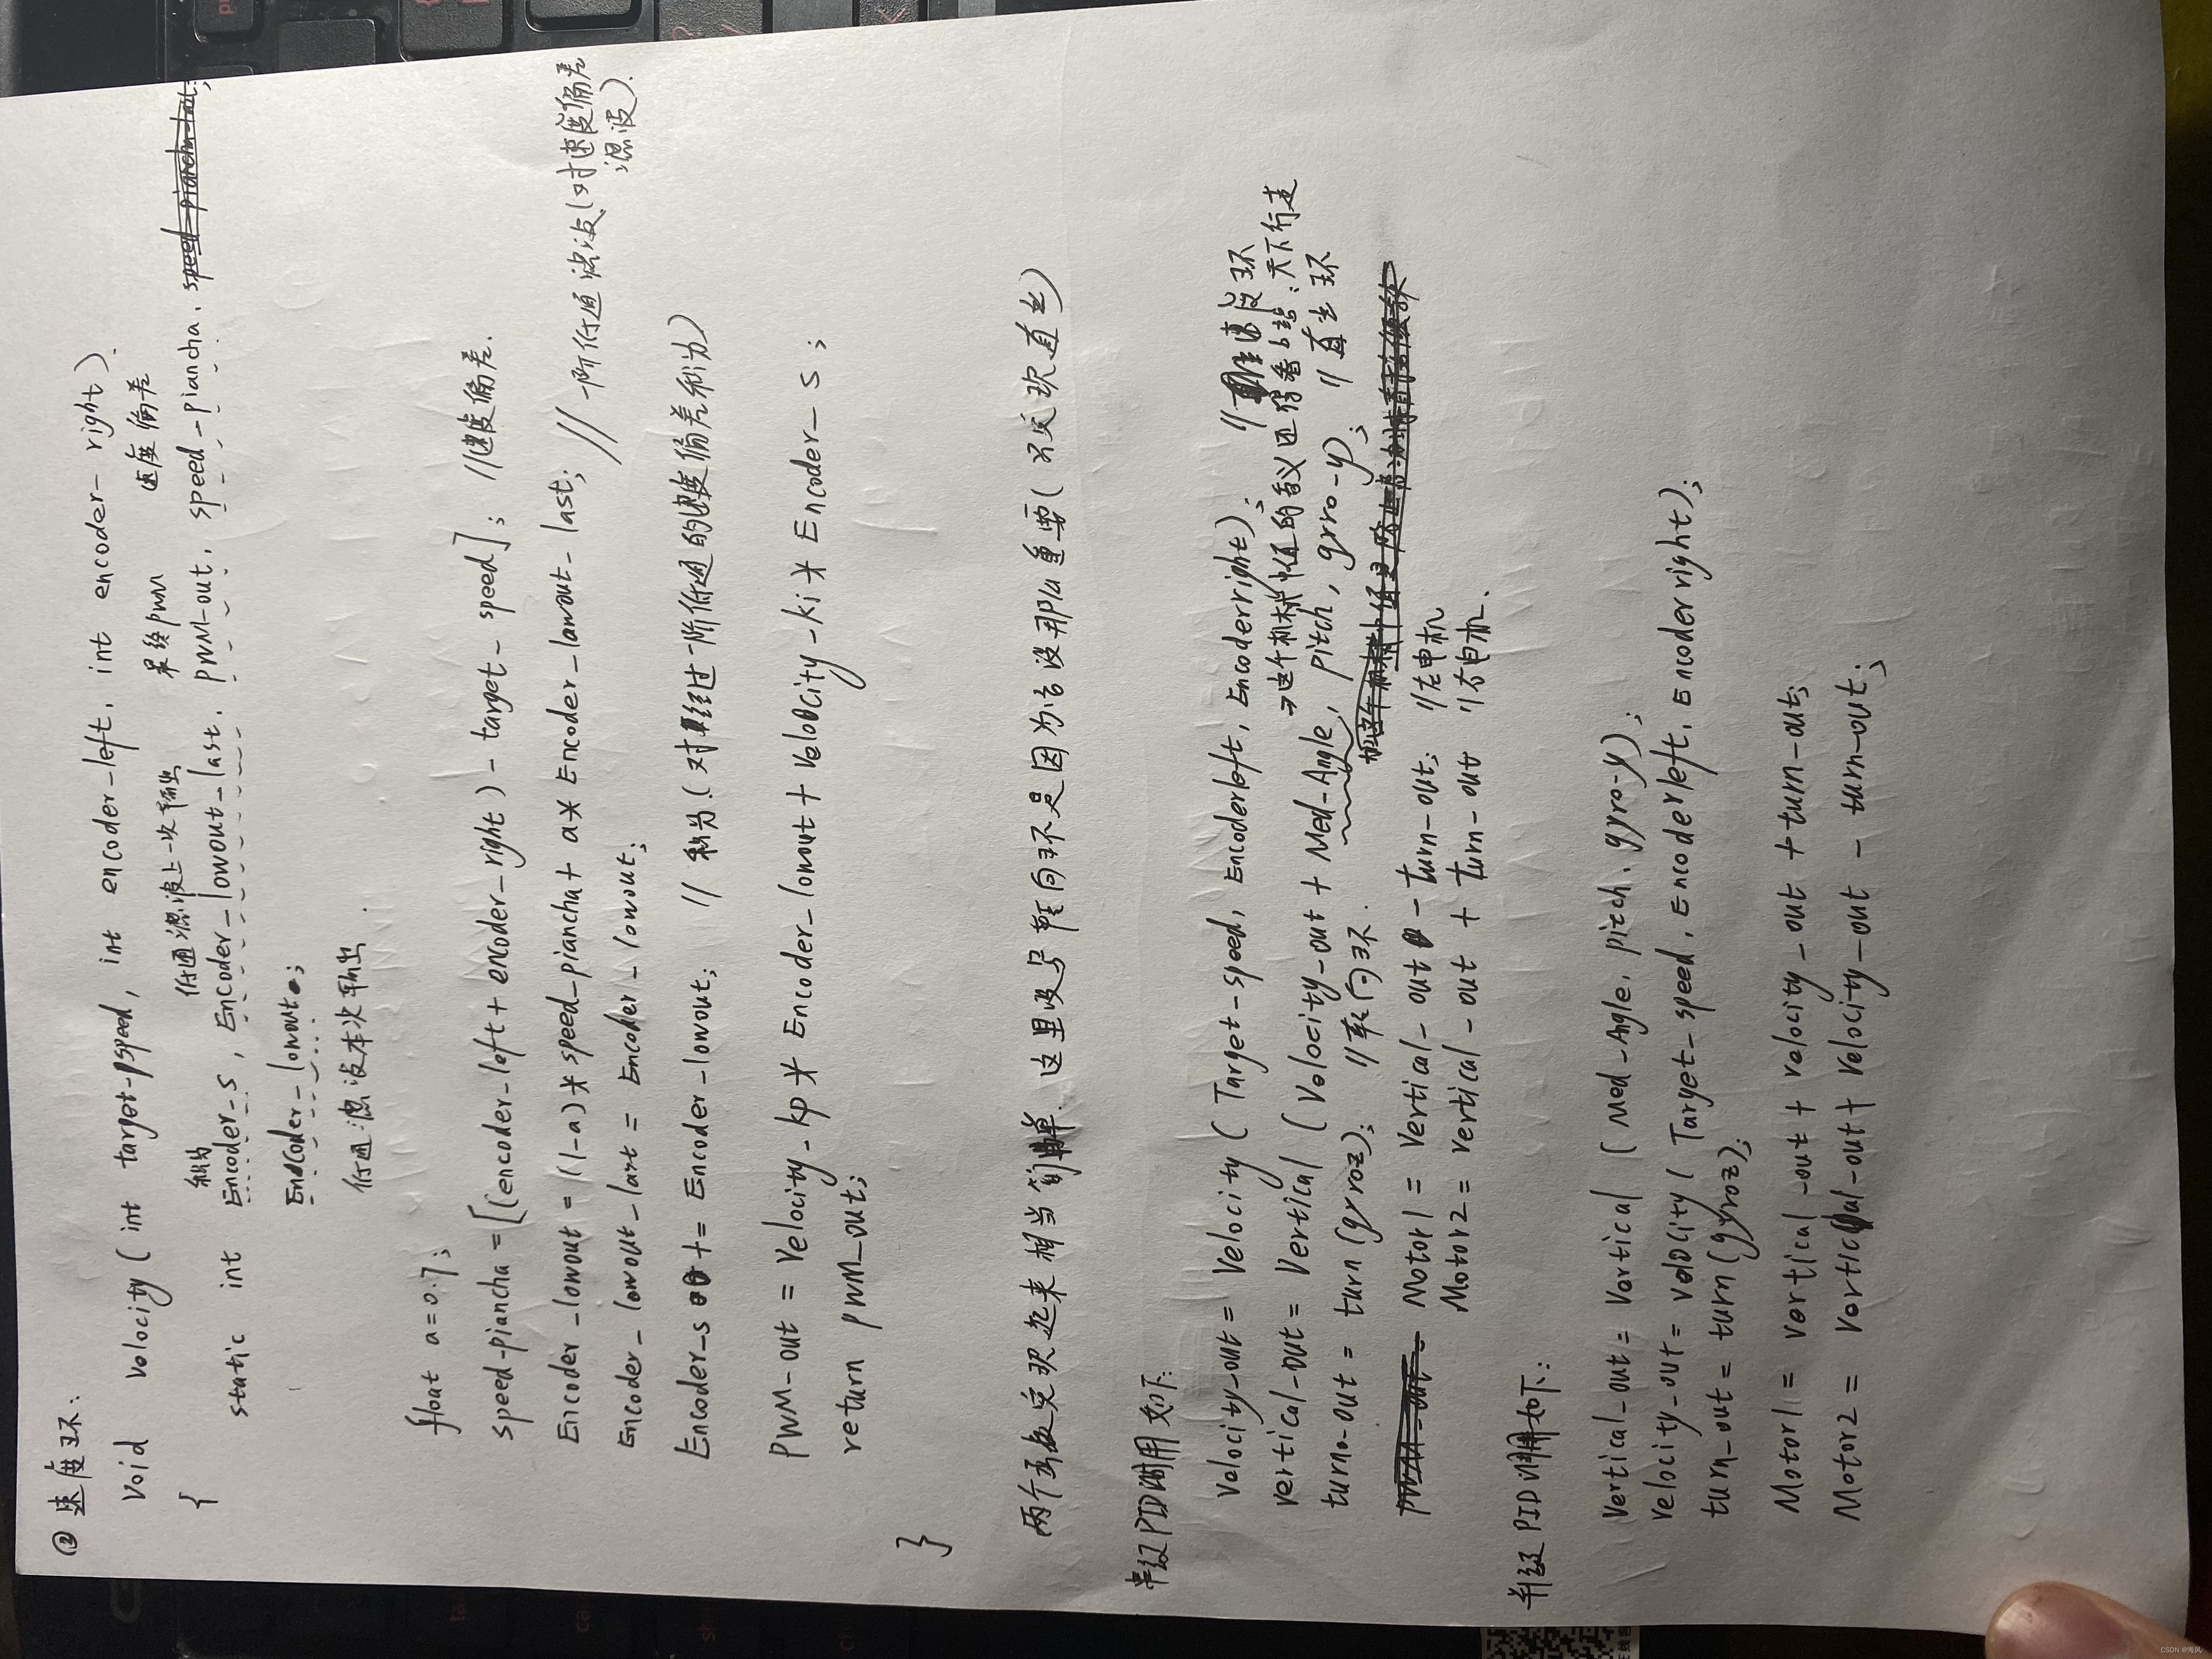 ② 速度环:
void velocity ( int target-speed, int encoder-left, int encoder-right ).
{
积分 低通滤波上一次输出 最终pwm 速度偏差
static int Encoder_s, Encoder_lowout_last, PWM-out, speed-piancha,
Encoder_lowout;
低通滤波本次输出.
float a=0.7;
speed-piancha = [(encoder_left + encoder_right) - target_speed]; //速度偏差.
Encoder_lowout = (1-a)*speed_piancha + a* Encoder_lowout_last; // 一阶低通滤波(对速度偏差
滤波).
Encoder_lowout_last = Encoder_lowout;
Encoder_s += Encoder_lowout; // 积分(对经过一阶低通的速度偏差积分)
PWM-out = Velocity_kp * Encoder_lowout + Velocity_ki * Encoder_s;
return PWM_out;
}
两个函数实现起来相当简单. 这里没写转向环不是因为它没那么重要(
串级PID调用如下:
Velocity-out = Velocity ( Target-speed, Encoderleft, Encoderright); // 速度环
→这个机械中值的含义还得看B站:天下行走
Vertical-out = Vertical ( Velocity-out + Med-Angle, Pitch, gyro-y); // 直立环
turn-out = turn (gyroz); //转向环.
Motor1 = Vertical-out - turn-out; //左电机
Motor2 = Vertical-out + turn-out //右电机.
并级PID调用如下:
Vertical_out = Vertical ( Med-Angle, pitch, gyro-y);
Velocity_out = velocity ( Target_speed, Encoderleft, Encoderright);
turn_out = turn (gyroz);
Motor1 = Vertical-out + Velocity-out + turn-out;
Motor2 = Vertical-out + Velocity-out - turn-out;
CSDN @海风